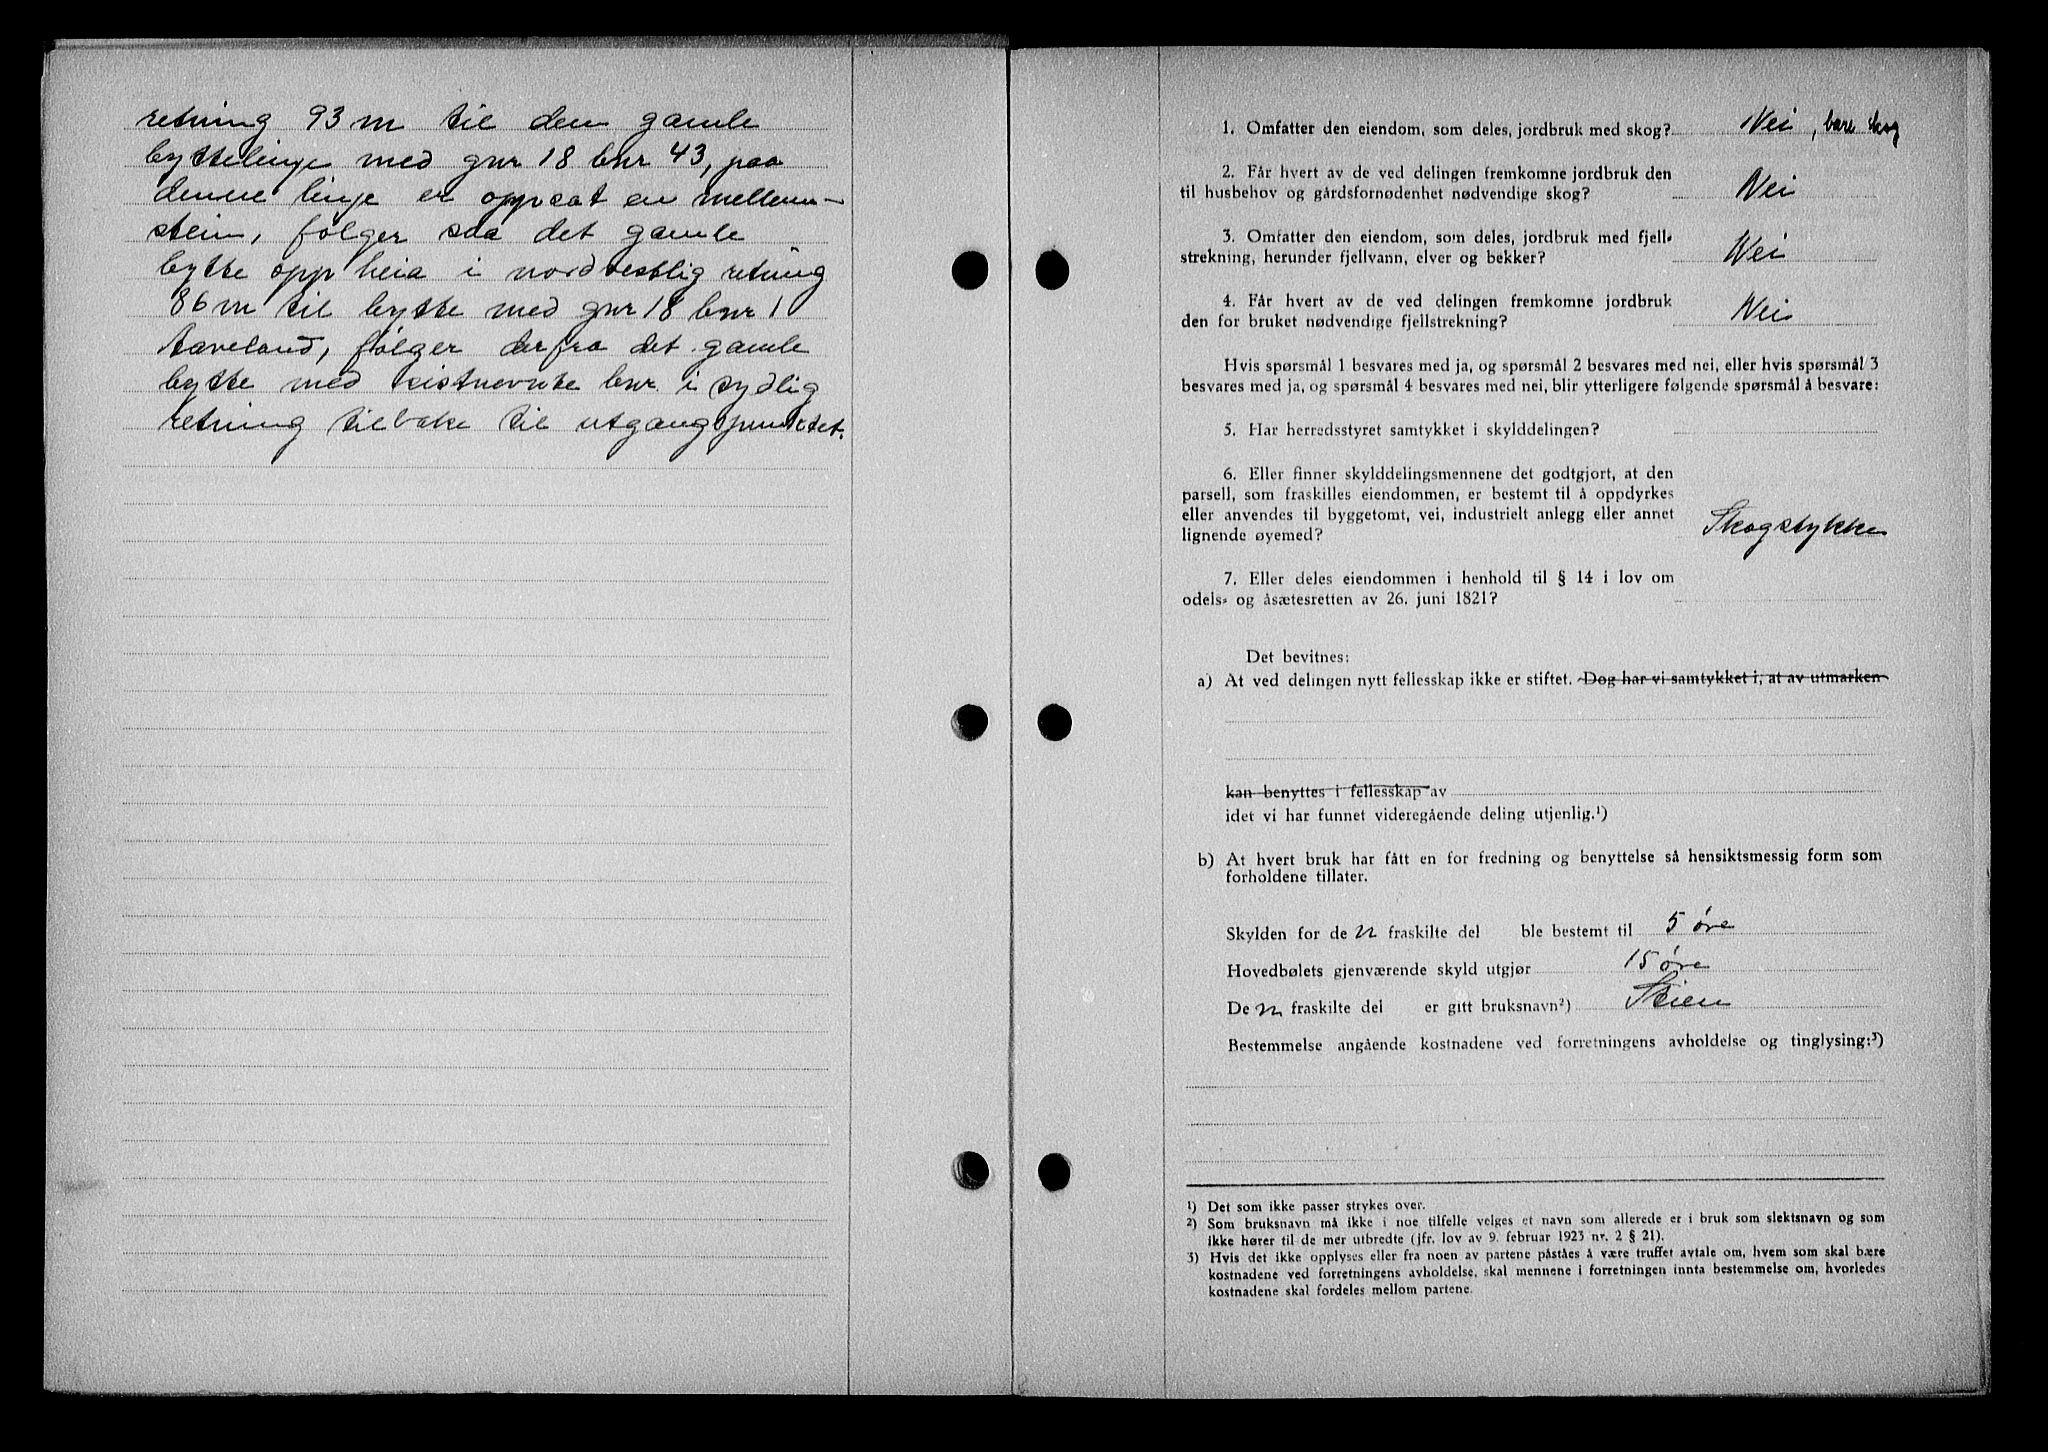 retning 93 m til den gamle
byttelinje med gnr 18 bnr 43, paa
denne linje er oppsat en mellem-
stein, følger saa det gamle
bytte opp heia i nordvestlig retning
86 m til bytte med gnr 18 bnr 1
Aaveland, følger derfra det gamle
bytte med sistnevnte bnr. i sydlig
retning tilbake til utgangspunktet.
1. Omfatter den eiendom, som deles, jordbruk med skog? Nei, bare skog
2. Får hvert av de ved delingen fremkomne jordbruk den
til husbehov og gårdsfornødenhet nødvendige skog? Nei
3. Omfatter den eiendom, som deles, jordbruk med fjell-
strekning, herunder fjellvann, elver og bekker? Nei
4. Får hvert av de ved delingen fremkomne jordbruk
den for bruket nødvendige fjellstrekning? Nei
Hvis spørsmål 1 besvares med ja, og spørsmål 2 besvares med nei, eller hvis spørsmål 3
besvares med ja, og spørsmål 4 besvares med nei, blir ytterligere følgende spørsmål å besvare:
5. Har herredsstyret samtykket i skylddelingen?
6. Eller finner skylddelingsmennene det godtgjort, at den
parsell, som fraskilles eiendommen, er bestemt til å oppdyrkes
eller anvendes til byggetomt, vei, industrielt anlegg eller annet
lignende øyemed? Skogstykke
7. Eller deles eiendommen i henhold til § 14 i lov om
odels- og åsætesretten av 26. juni 1821?
Det bevitnes:
a) At ved delingen nytt fellesskap ikke er stiftet. Dog har vi samtykket i, at av utmarken
kan benyttes i fellesskap av
idet vi har funnet videregående deling utjenlig.¹)
b) At hvert bruk har fått en for fredning og benyttelse så hensiktsmessig form som
forholdene tillater.
Skylden for de n fraskilte del ble bestemt til 5 øre
Hovedbølets gjenværende skyld utgjør 15 øre
De n fraskilte del er gitt bruksnavn²)
Bestemmelse angående kostnadene ved forretningens avholdelse og tinglysing:³)
¹) Det som ikke passer strykes over.
²) Som bruksnavn må ikke i noe tilfelle velges et navn som allerede er i bruk som slektsnavn og som
ikke hører til de mer utbredte (jfr. lov av 9. februar 1923 nr. 2 § 21).
3) Hvis det ikke opplyses eller fra noen av partene påståes å være truffet avtale om, hvem som skal bære
kostnadene ved forretningens avholdelse, skal mennene i forretningen innta bestemmelse om, hvorledes
kostnadene skal fordeles mellom partene.